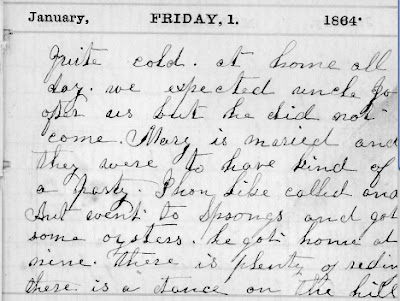 January, FRIDAY, 1. 1864.
Quite cold. at home all
day. we expected uncle Jo
ofer us but he did not
come. Mary is maried and
they were to have kind of
a party. called and
went to Spoongs and got
some oysters. he got home at
nine. There is plenty of redin
there is a dance on the hill